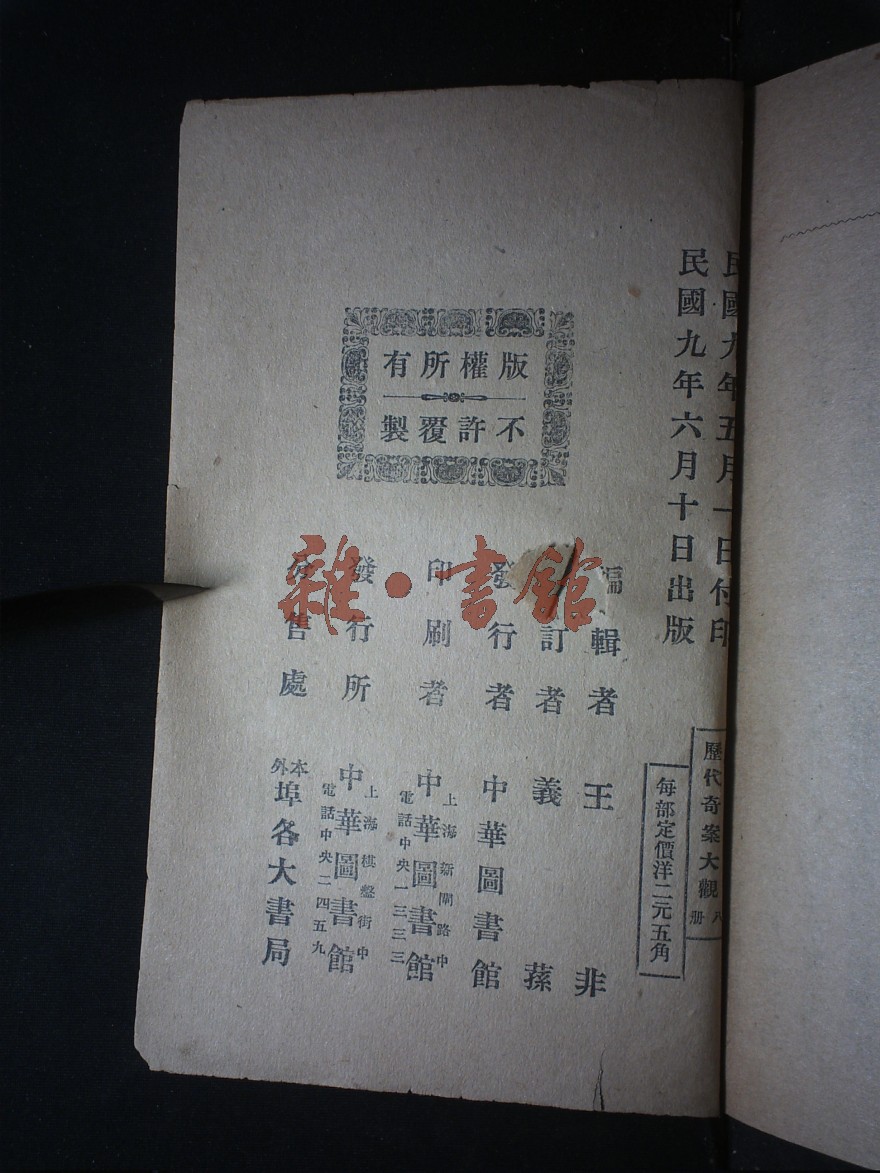 民國九年五月一日付印
民國九年六月十日出版
歷代奇案大觀 八册
每部定價洋二元五角
版權所有
不許覆製
編輯者 王非
訂者 義蓀
發行者 中華圖書館
印刷者 上海新閘路中 中華圖書館 電話中央一三三三
發行所 上海棋盤街中 中華圖書館 電話中央二四五九
分售處 本外埠各大書局
雜·書館